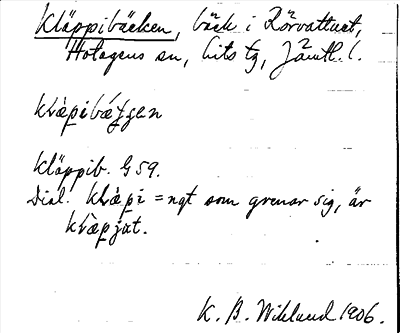 Kläppibäcken, bäck i Rörvattnet,
Hotagens sn, Lits tg, Jämtl. l.
klæ̀pibǽʒʒen
Kläppib. G 59.
Dial. klæ̀pi = ngt som grenar sig, är
klæ̀pjat.
K. B. Wiklund 1906.